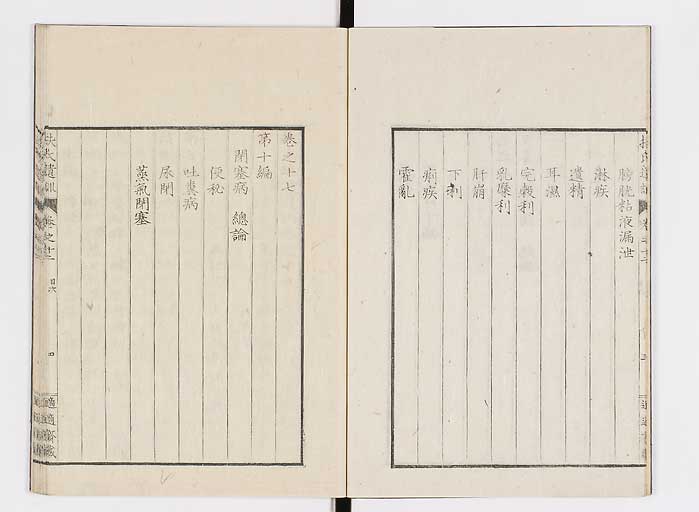 膀胱粘液漏泄
淋疾
遺精
耳漏
完穀利
乳糜利
肝崩
下利
痢疾
霍亂
卷之十七
第十編
閉塞病 總論
便秘
吐糞病
尿閉
蒸氣閉塞
扶氏遺訓 卷之十二 目次 四 適適齋藏